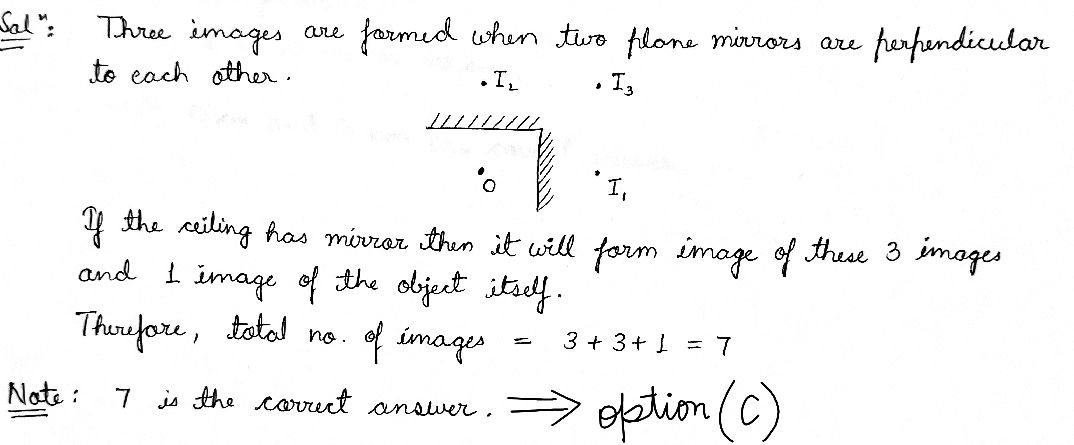 Solⁿ: Three images are formed when two plane mirrors are perpendicular
to each other.
I₂ I₃
O I₁
If the ceiling has mirror then it will form image of these 3 images
and 1 image of the object itself.
Therefore, total no. of images = 3 + 3 + 1 = 7
Note: 7 is the correct answer. ⟹ option (C)